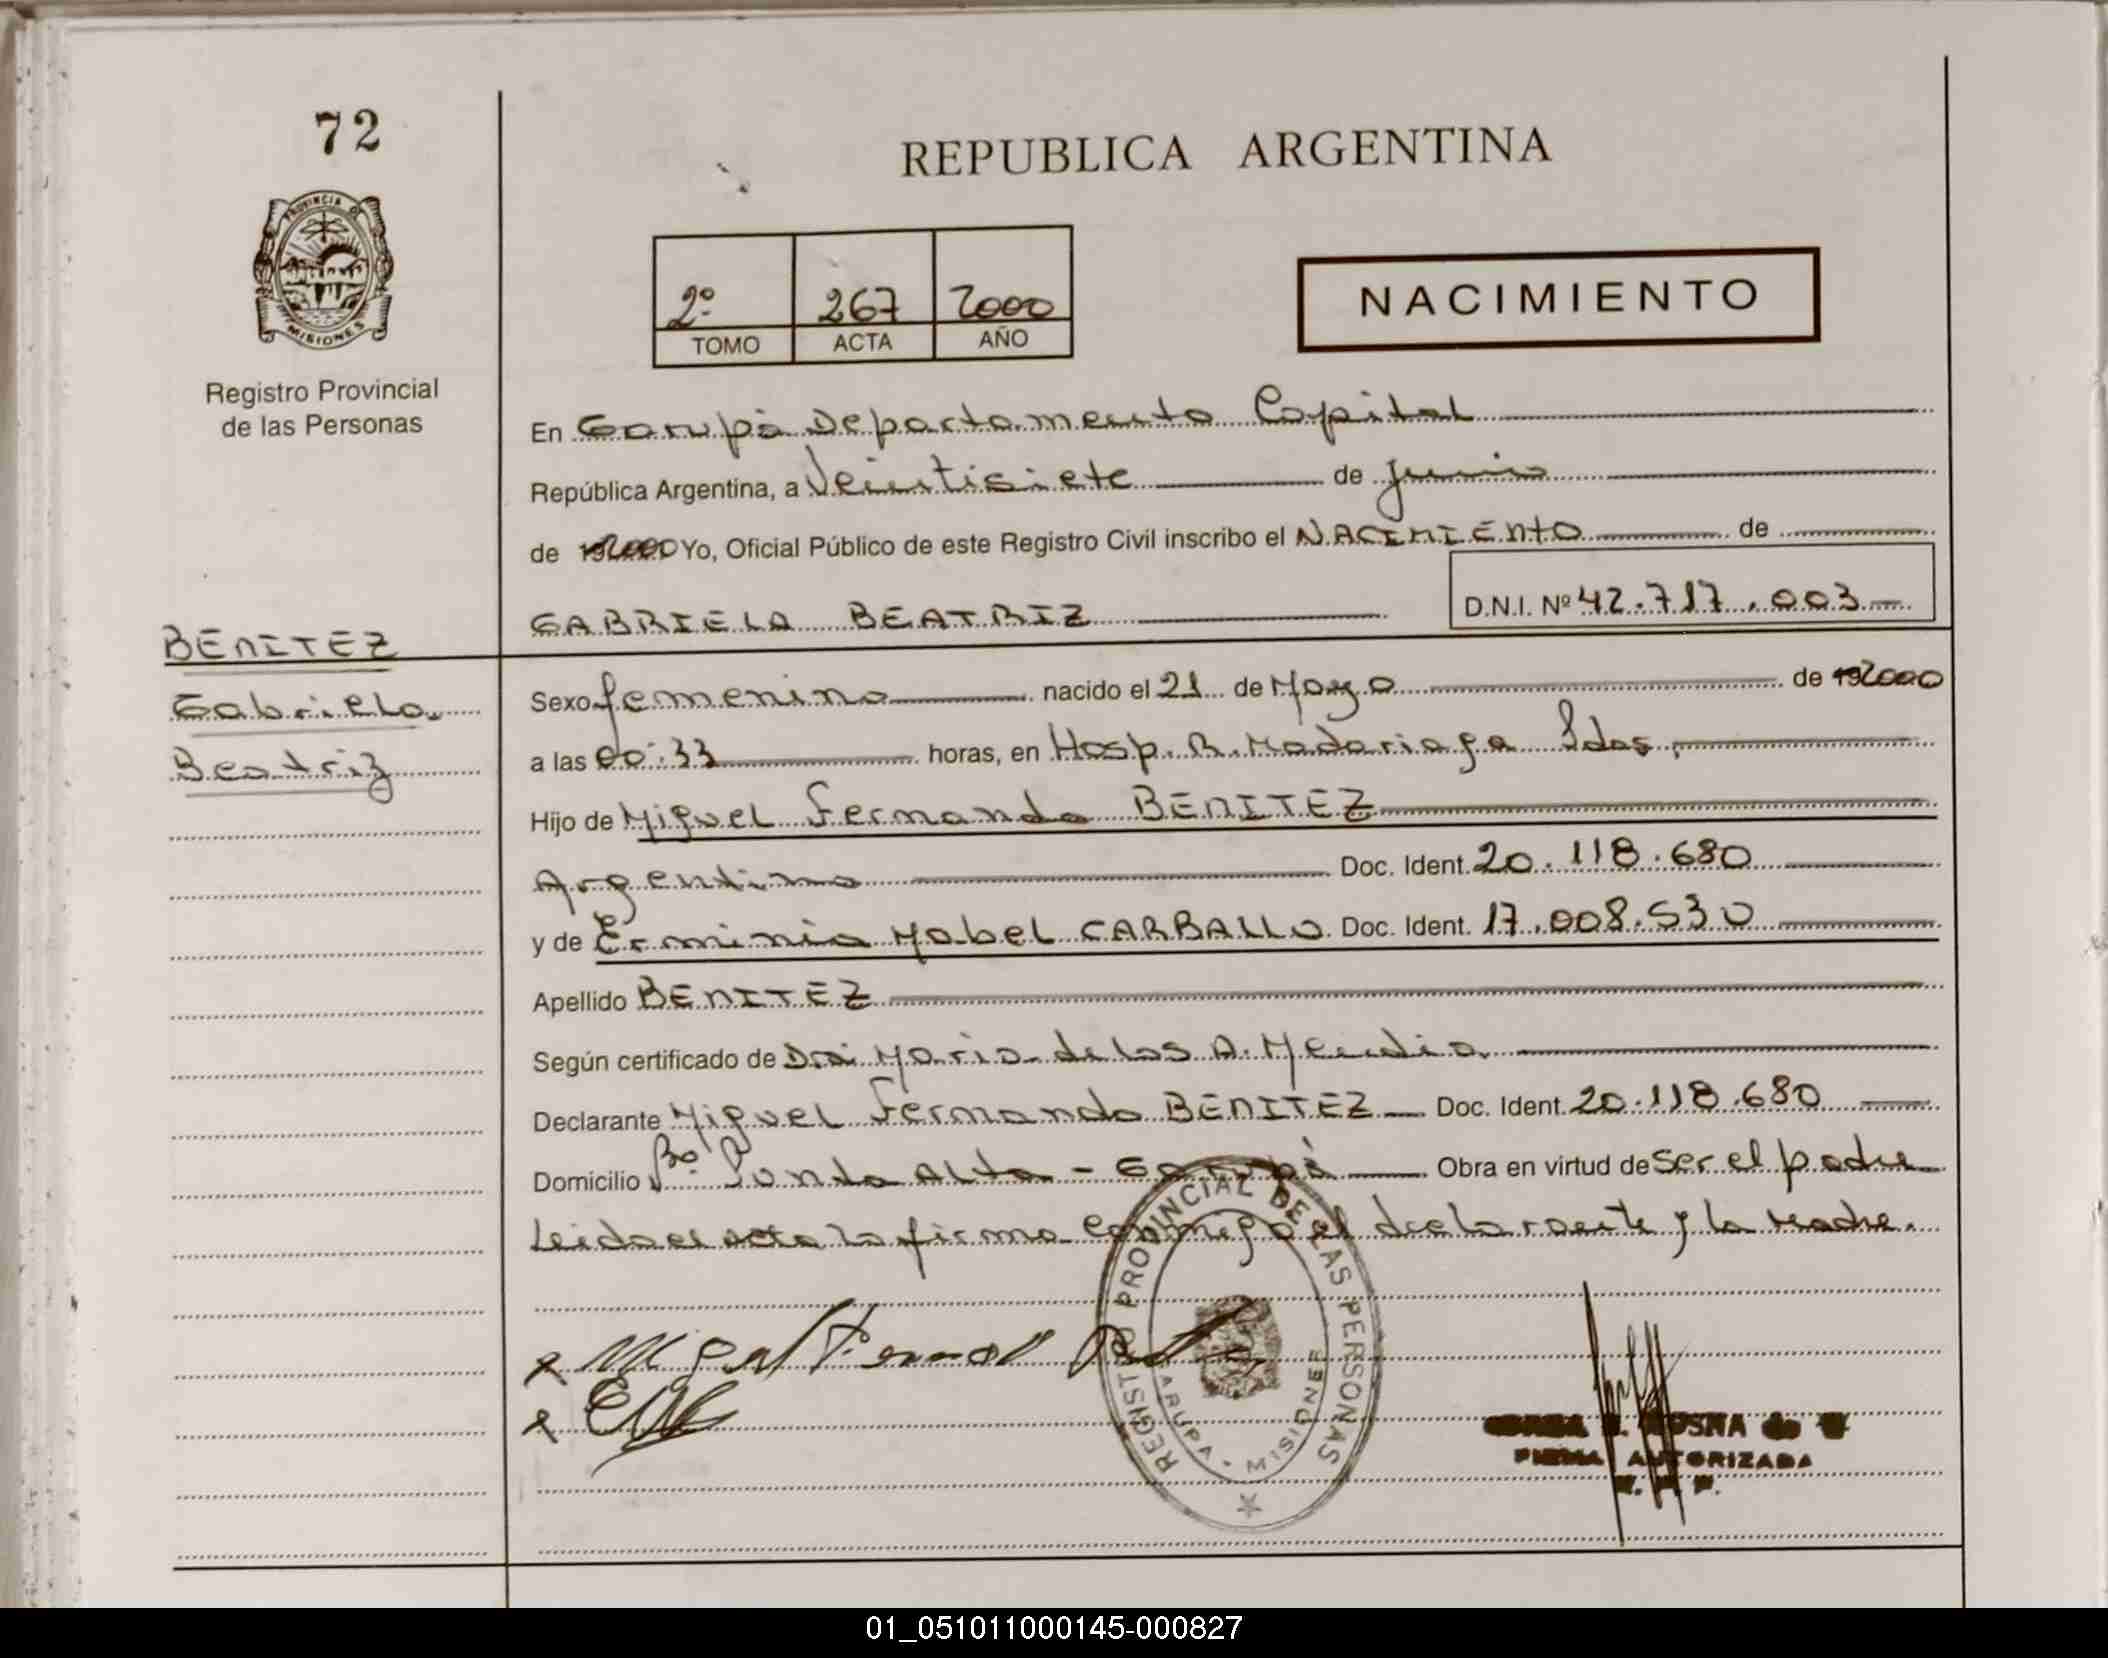 72
REPUBLICA ARGENTINA
PROVINCIA DE
MISIONES
Registro Provincial
de las Personas
2º 267 2000
TOMO ACTA AÑO
NACIMIENTO
En Garupá Departamento Capital
República Argentina, a Veintisiete de junio
de 192000 Yo, Oficial Público de este Registro Civil inscribo el NACIMIENTO de
GABRIELA BEATRIZ D.N.I. Nº 42.717.003
BENITEZ
Gabriela
Beatriz
Sexo femenino nacido el 21 de Mayo de 192000
a las 00:33 horas, en Hosp. R. Madariaga Pdas,
Hijo de Miguel Fernando BENITEZ
Argentino Doc. Ident. 20.118.680
y de Erminia Mabel CARBALLO Doc. Ident. 17.008.530
Apellido BENITEZ
Según certificado de Dra. Maria de los A. Mendia
Declarante Miguel Fernando BENITEZ Doc. Ident. 20.118.680
Domicilio Bº Punta Alta - Garupá Obra en virtud de ser el padre
Leida el acta la firma conmigo el declarante y la Madre.
REGISTRO PROVINCIAL DE LAS PERSONAS
GARUPA - MISIONES
FIRMA AUTORIZADA
01_051011000145-000827